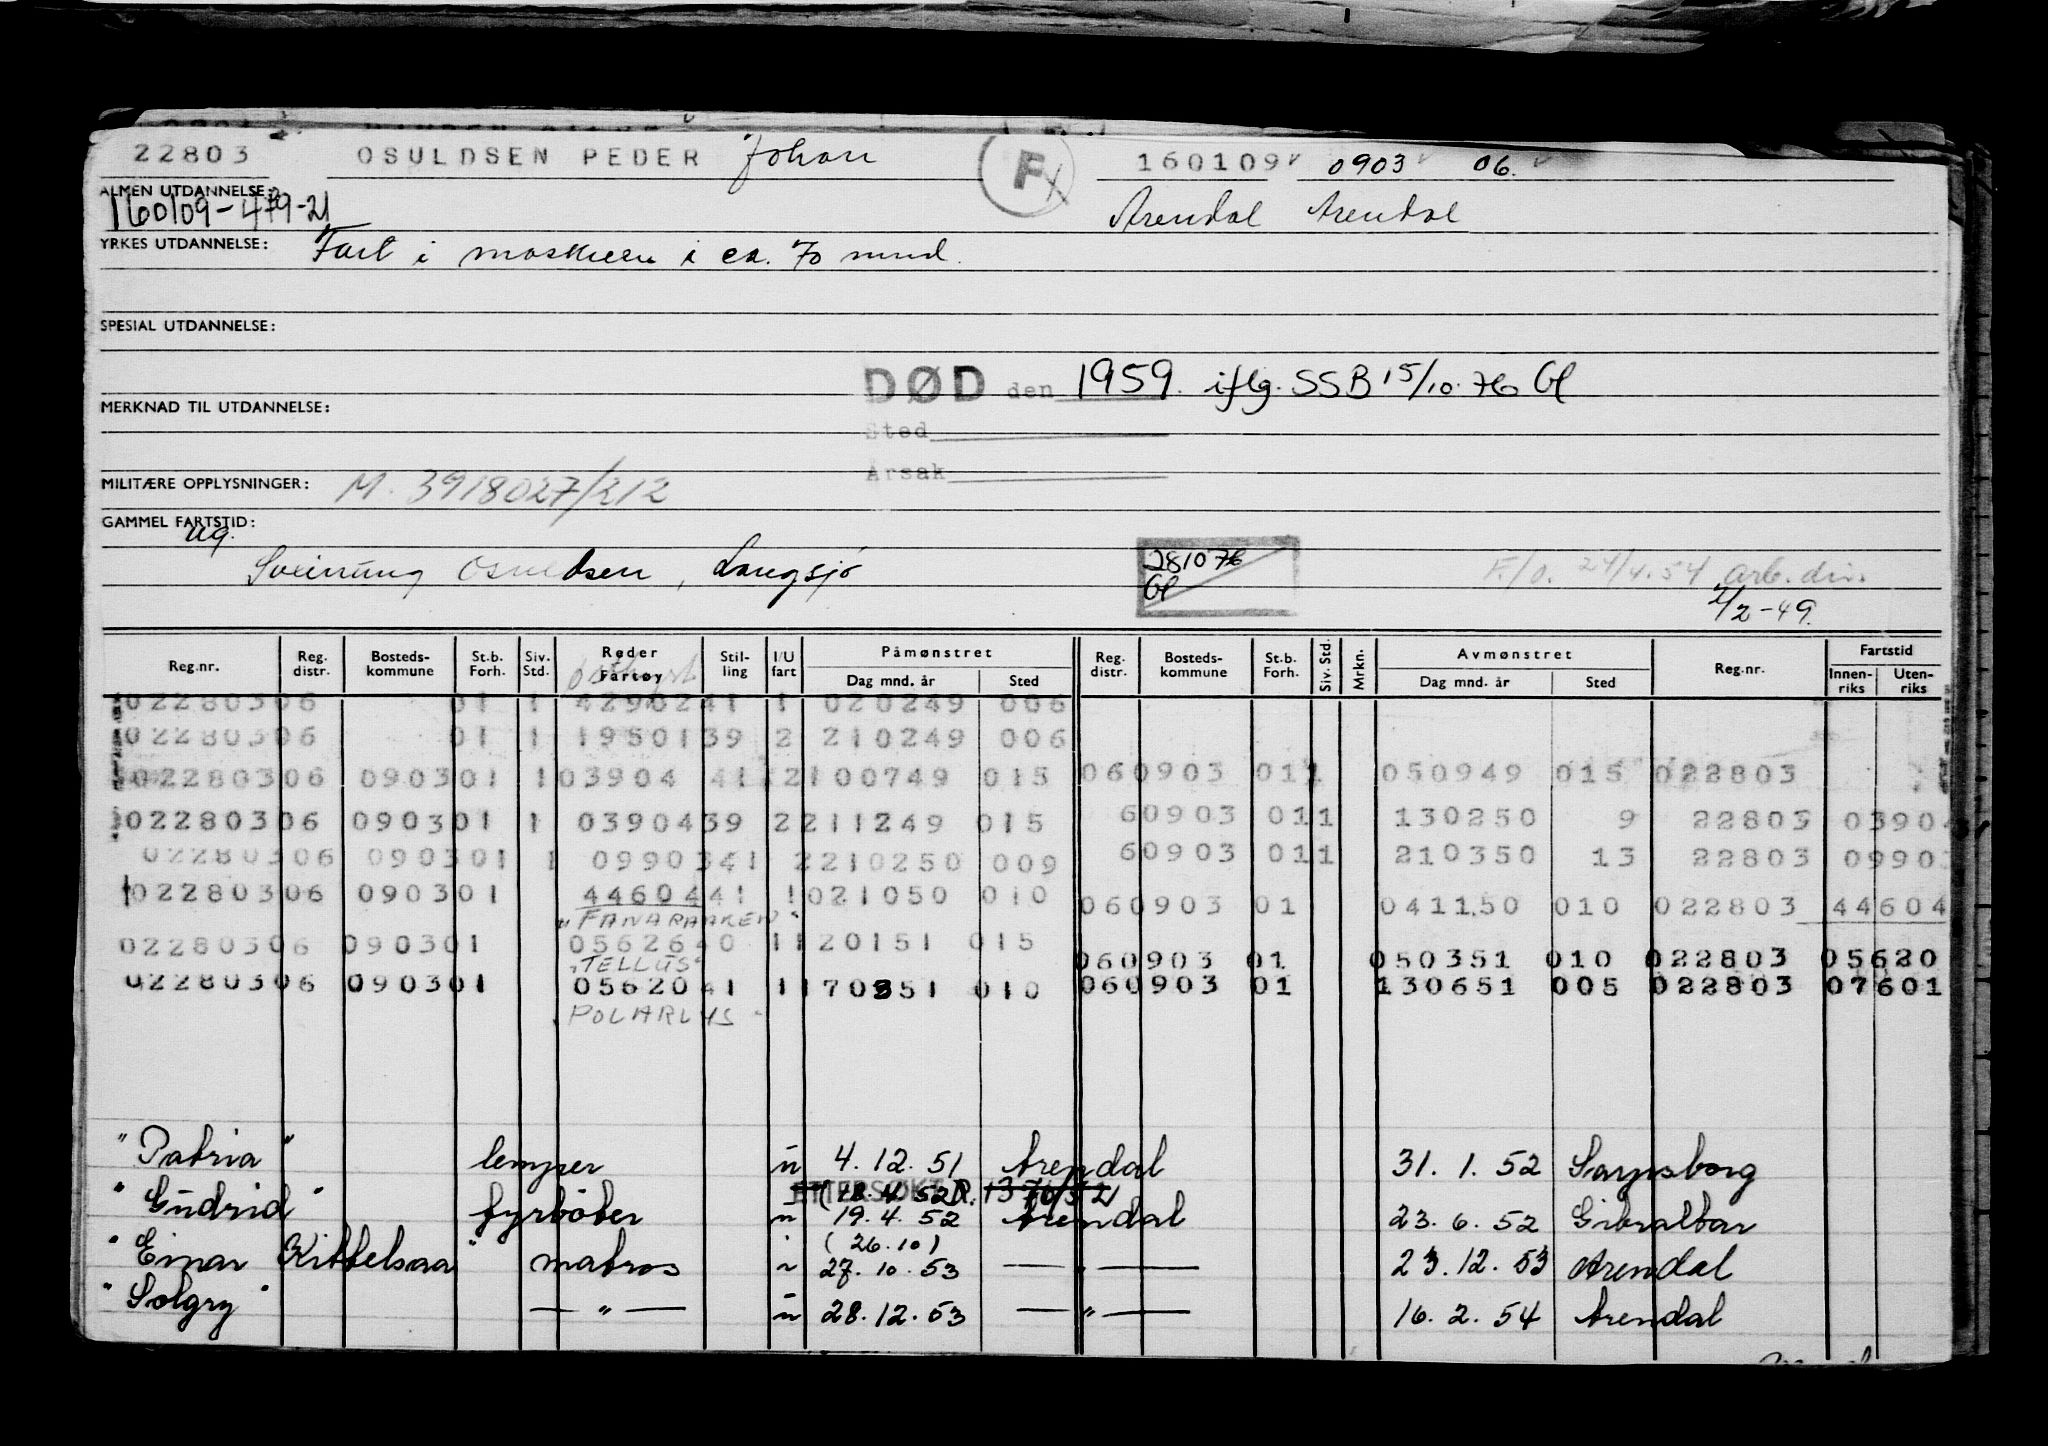 22803 OSULDSEN PEDER Johan F 160109 0903 06.
ALMEN UTDANNELSE:
160109-479-21 Arendal Arendal
YRKES UTDANNELSE: Fart i maskin i ca. 70 mnd.
SPESIAL UTDANNELSE:
DØD den 1959. iflg. SSB 15/10.76 Gl
MERKNAD TIL UTDANNELSE:
Sted
Årsak
MILITÆRE OPPLYSNINGER: M. 3918027/212
GAMMEL FARTSTID:
Ug.
Sveinung Osuldsen, Langsjø 281076 F./O. 24/4.54 arb. dir.
Gl 2/2-49.
Reg.nr. Reg. distr. Bosteds-kommune St.b. Forh. Siv. Std. Reder Fartøy Stil-ling I/U fart Påmønstret Dag mnd. år Sted Reg. distr. Bosteds-kommune St.b. Forh. Siv. Std. Mrkn. Avmønstret Dag mnd. år Sted Reg.nr. Fartstid Innen-riks Uten-riks
02280306 01 1 4290241 1 020249 006
02280306 01 1 1950139 2 210249 006
02280306 090301 103904 41 2100749 015 060903 011 050949 015 022803
02280306 090301 1 0390439 2211249 015 60903 011 130250 9 22803 03904
02280306 090301 1 0990341 2210250 009 60903 011 210350 13 22803 0990
02280306 090301 4460441 1021050 010 060903 01 041150 010 022803 44604
"FANARAAKEN"
02280306 090301 0562640 1120151 015 060903 01 050351 010 022803 05620
"TELLUS"
02280306 090301 0562041 1170351 010 060903 01 130651 005 022803 07601
"POLARLYS"
"Patria" lemper u 4.12.51 Arendal 31.1.52 Sarpsborg
ETTERSØKT
"Gudrid" fyrbøter u 19.4.52 Arendal 23.6.52 Gibraltar
(26.10)
"Einar Kittelsaa" matros 27.10.53 — " — 23.12.53 Arendal
"Solgry" — " — u 28.12.53 — " — 16.2.54 Arendal